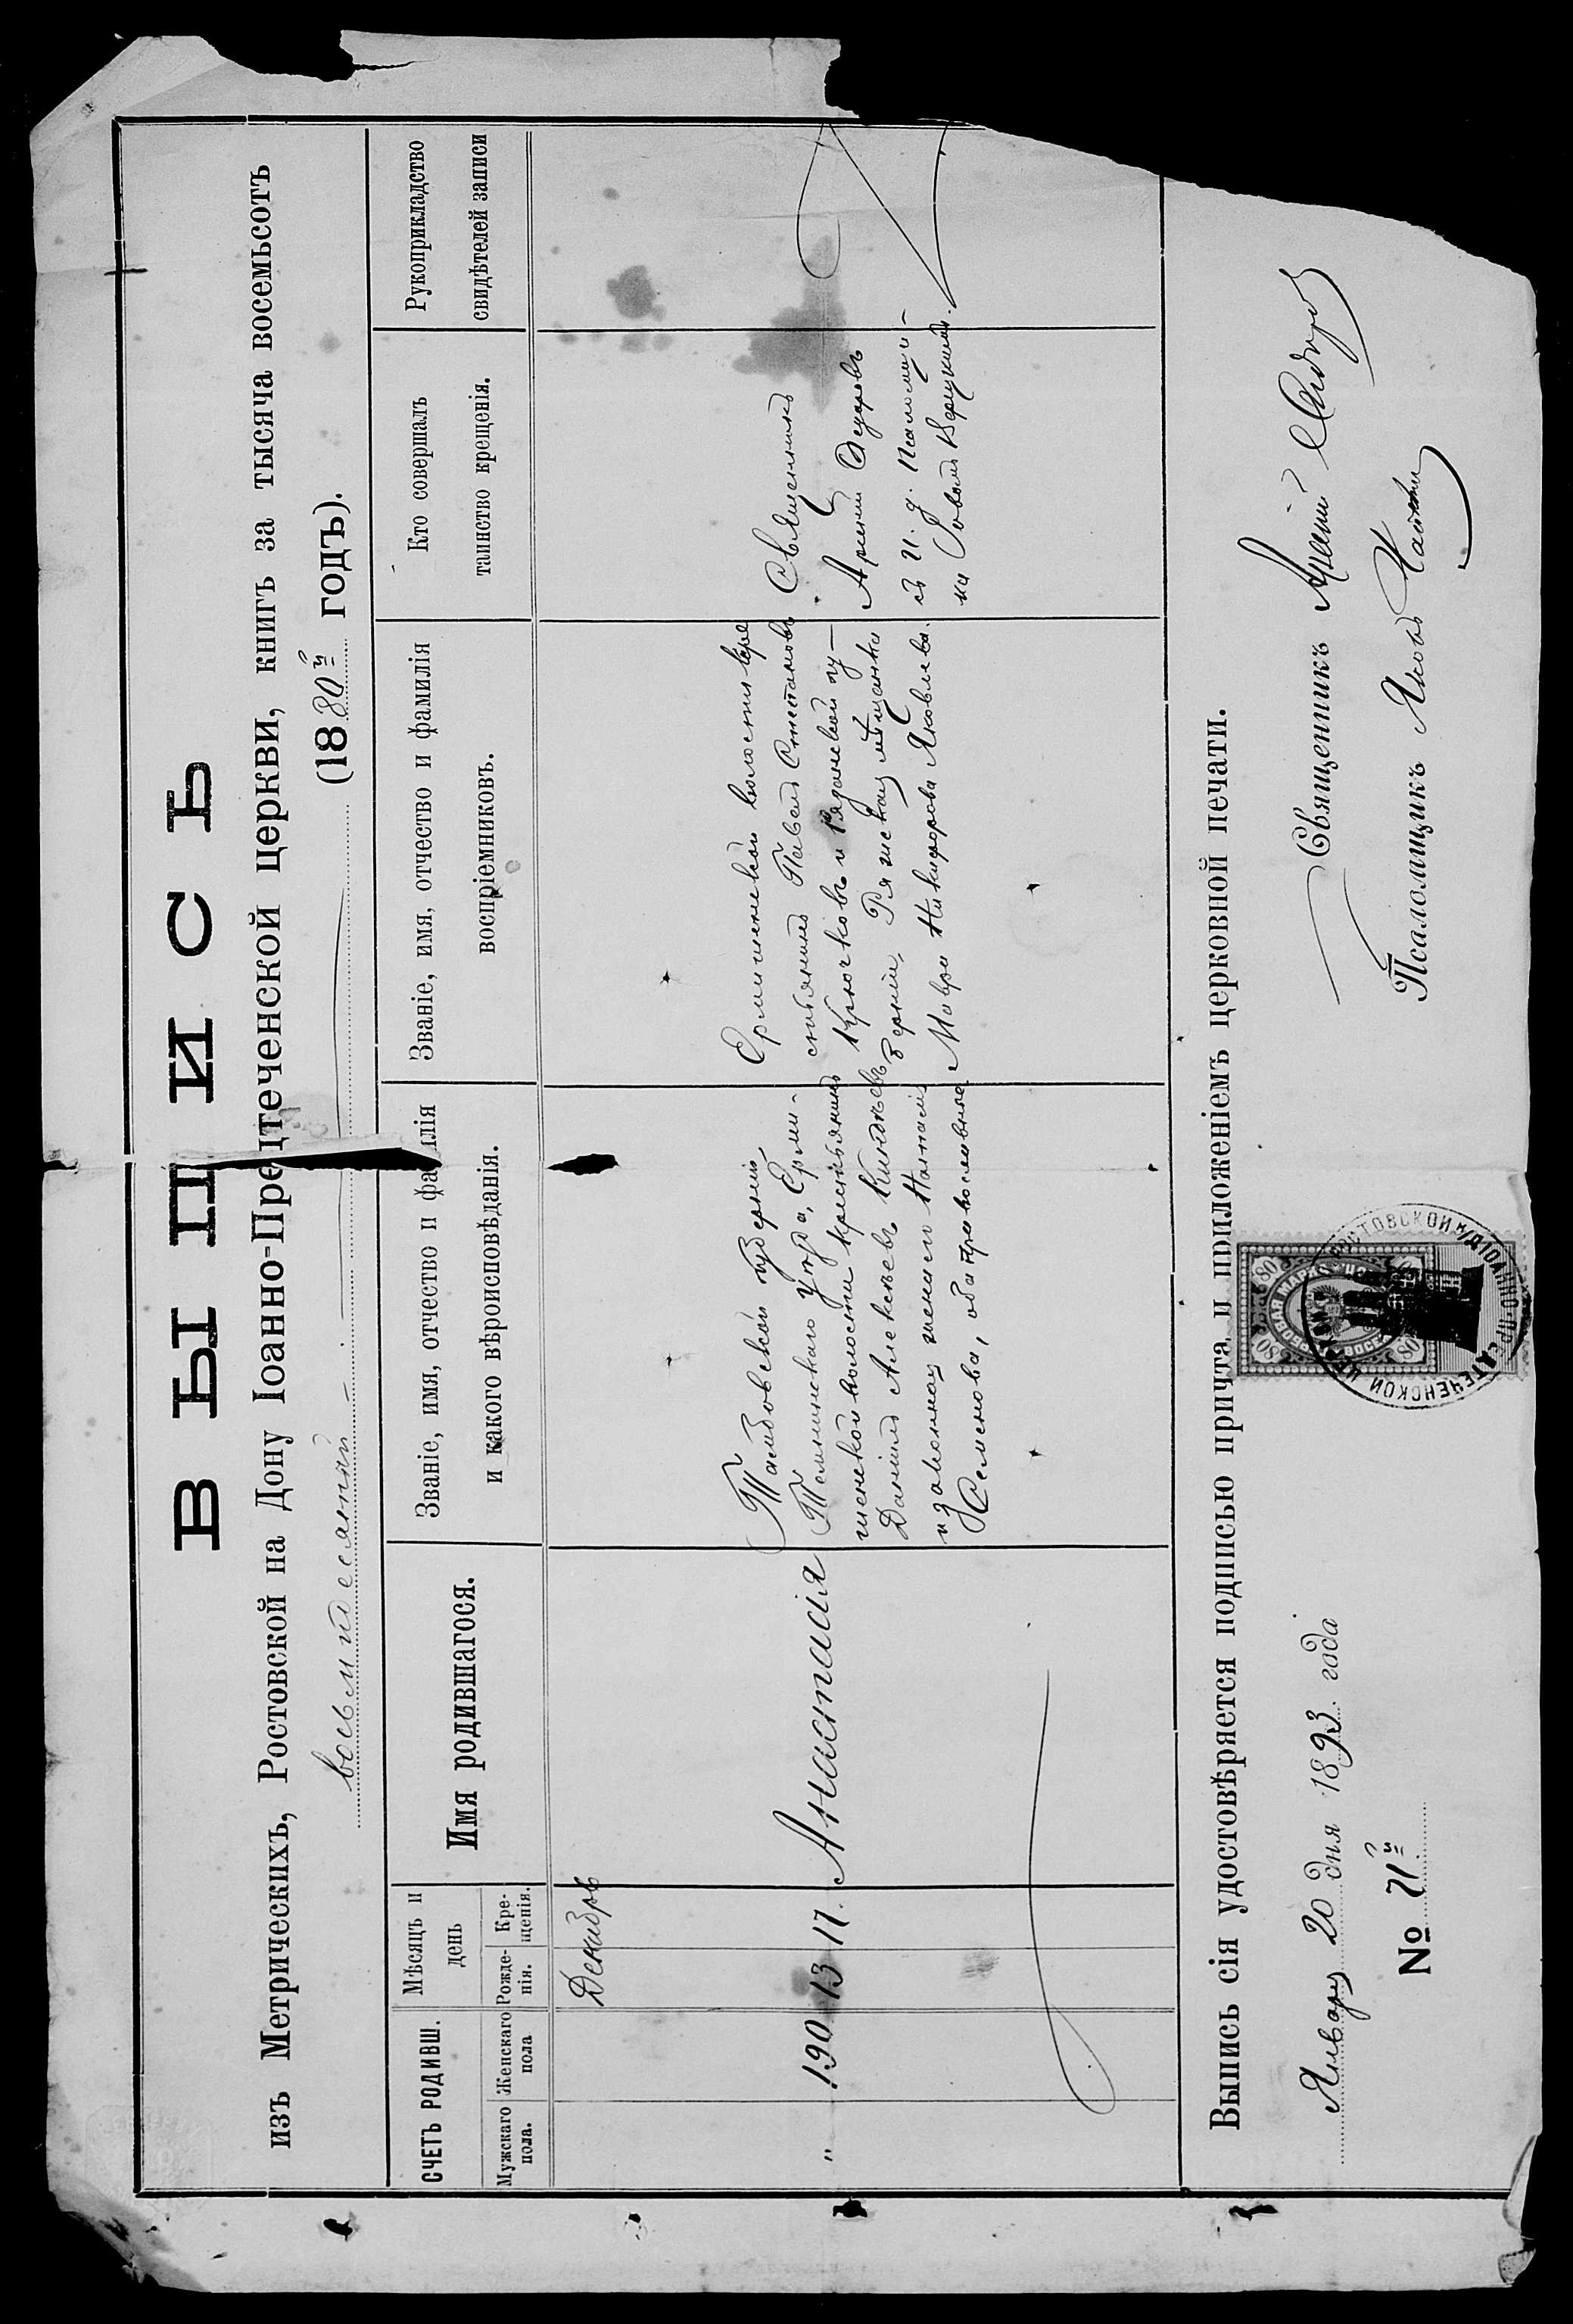 ВЫПИСЬ
изъ Метрическихъ, Ростовской на Дону Іоанно-Предтеченской церкви, книгъ за тысяча восемьсотъ
восьмидесятый (1880й годъ).
СЧЕТЪ РОДИВШ.
Мужскаго пола.
Женскаго пола
Мѣсяцъ и день
Рожде-
нія.
Кре-
щенія.
Имя родившагося.
Званіе, имя, отчество и фамилія
и какого вѣроисповѣданія.
Званіе, имя, отчество и фамилія
воспріемниковъ.
Кто совершалъ
таинство крещенія.
Рукоприкладство
свидѣтелей записи
Декабрь
" 190 13 17. Анастасія
Тамбовской губерніи
Темниковаго уѣзда, Ерми-
шенской волости крестьянинъ
Даніилъ Алексѣевъ
и законная жена его Наталія
Семенова, оба православные.
Ермишенской волости кре
стьянинъ Павелъ Степановъ
Крючковъ и Рязанской гу-
берніи, Ряжская мѣщанка
Мавра Никифорова Яковлева.
Священникъ
Арсеній
съ и. д. Псаломщи-
ка
Выпись сія удостовѣряется подписью причта и приложеніемъ церковной печати.
Январь 20 дня 1893 года
№ 71й
Священникъ Арсеній
Псаломщикъ Яковъ
80 80
ГЕРБОВАЯ МАРКА
80 80
РОСТОВСКОЙ Н/Д ІОАННО-ПРЕДТЕЧЕНСКОЙ ЦЕРКВИ